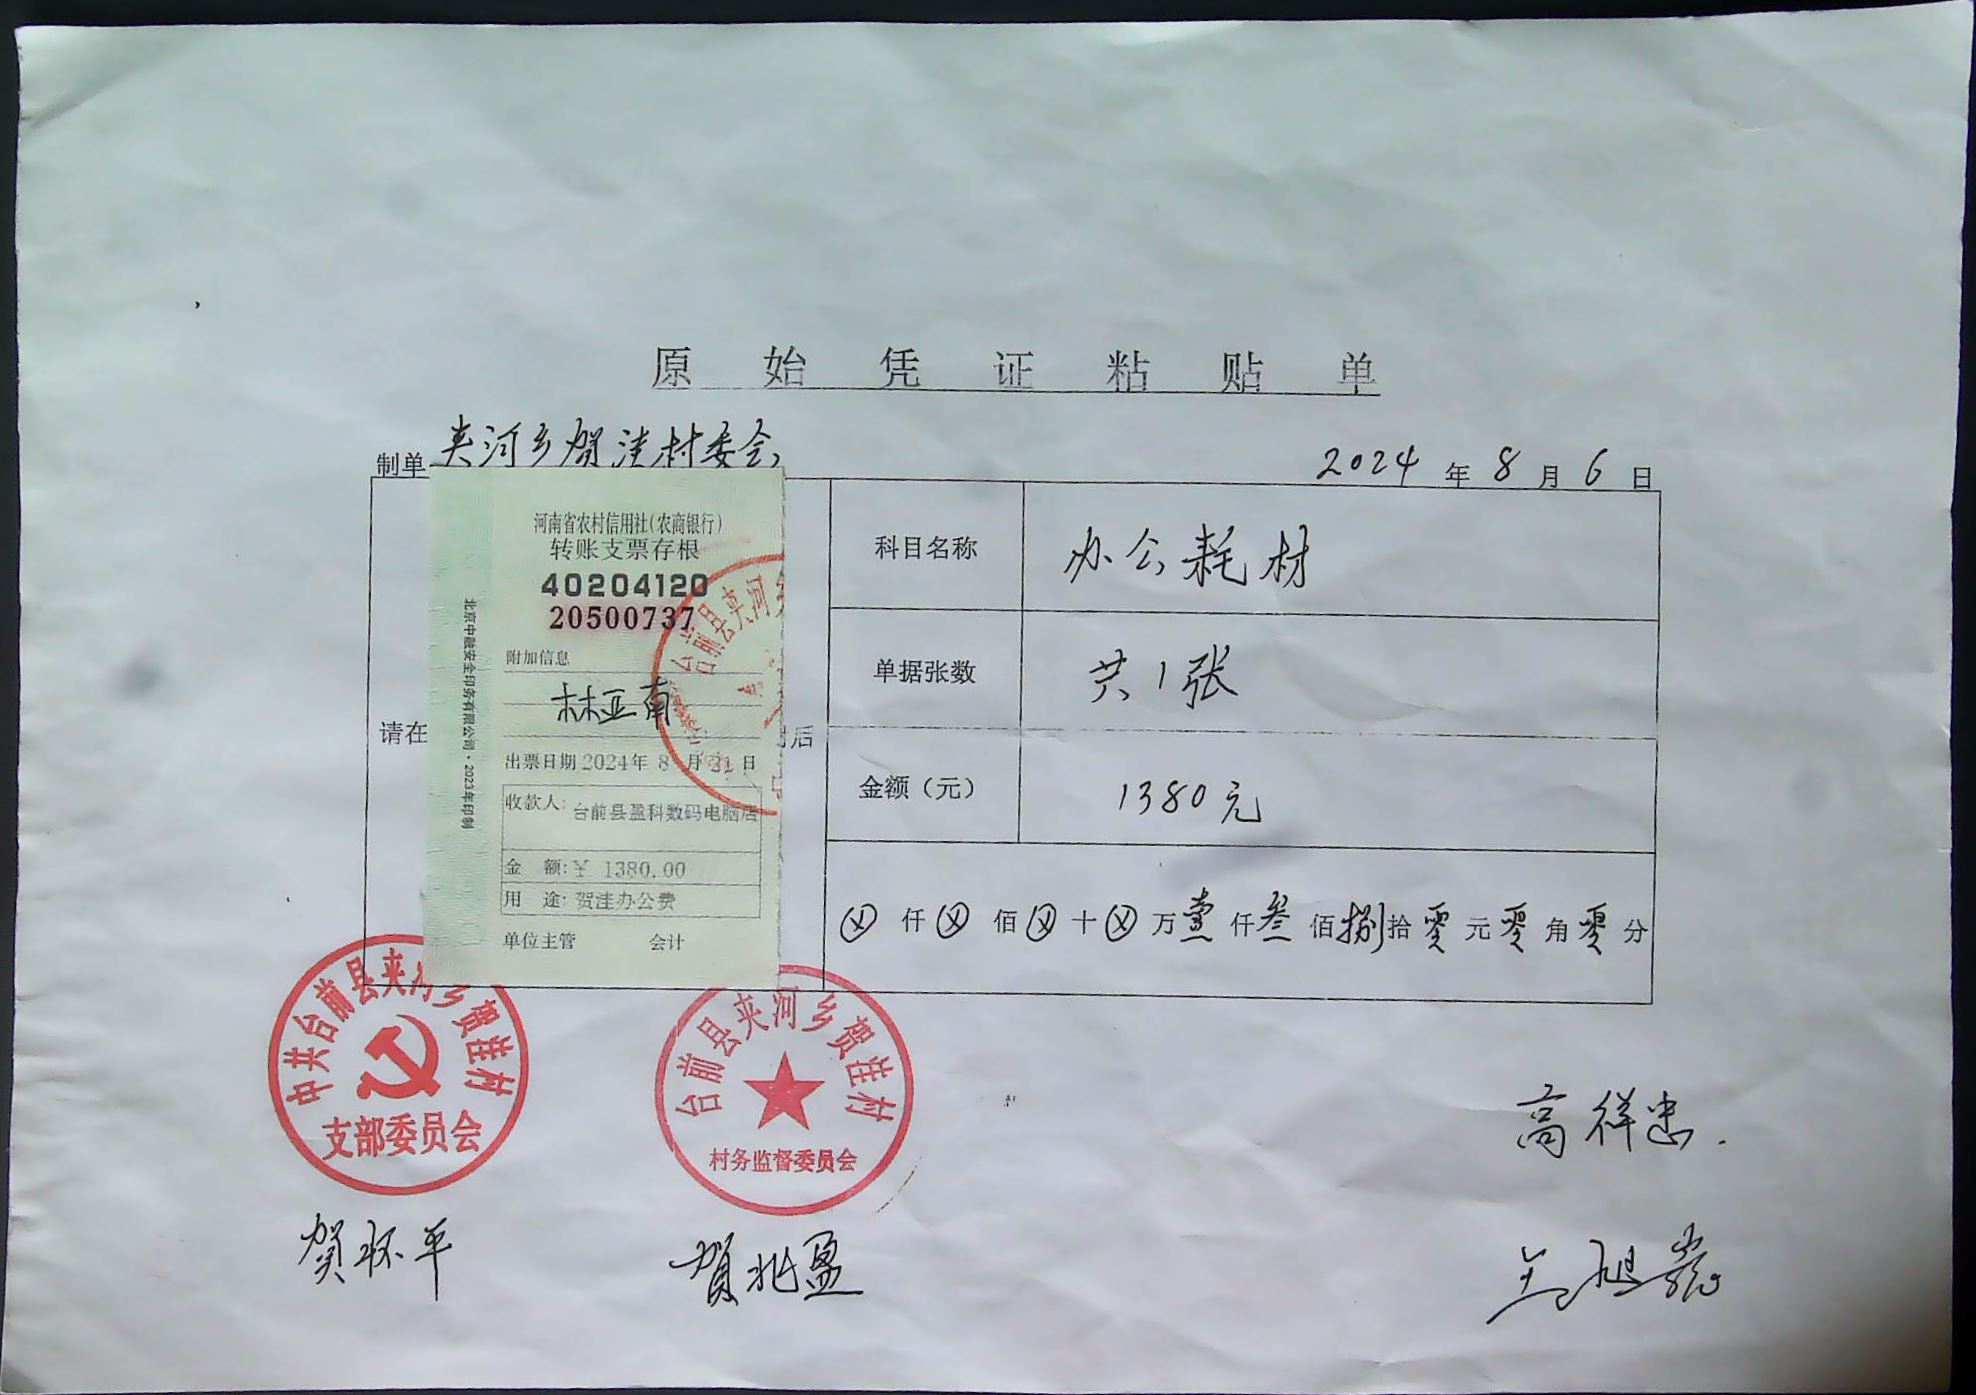 原始凭证粘贴单
制单 夹河乡贺洼村委会
2024年8月6日
河南省农村信用社(农商银行)
转账支票存根
40204120
20500737
附加信息
林亚南
出票日期2024年8月21日
收款人: 台前县盈科数码电脑店
金额:¥ 1380.00
用途: 贺洼办公费
单位主管 会计
北京中融安全印务有限公司·2023年印制
台前县夹河乡
请在
后
科目名称 办公耗材
单据张数 共1张
金额（元） 1380元
⊗仟⊗佰⊗十⊗万壹仟叁佰捌拾零元零角零分
中共台前县夹河乡贺洼村
支部委员会
台前县夹河乡贺洼村
村务监督委员会
高祥忠.
贺怀平
贺兆盈